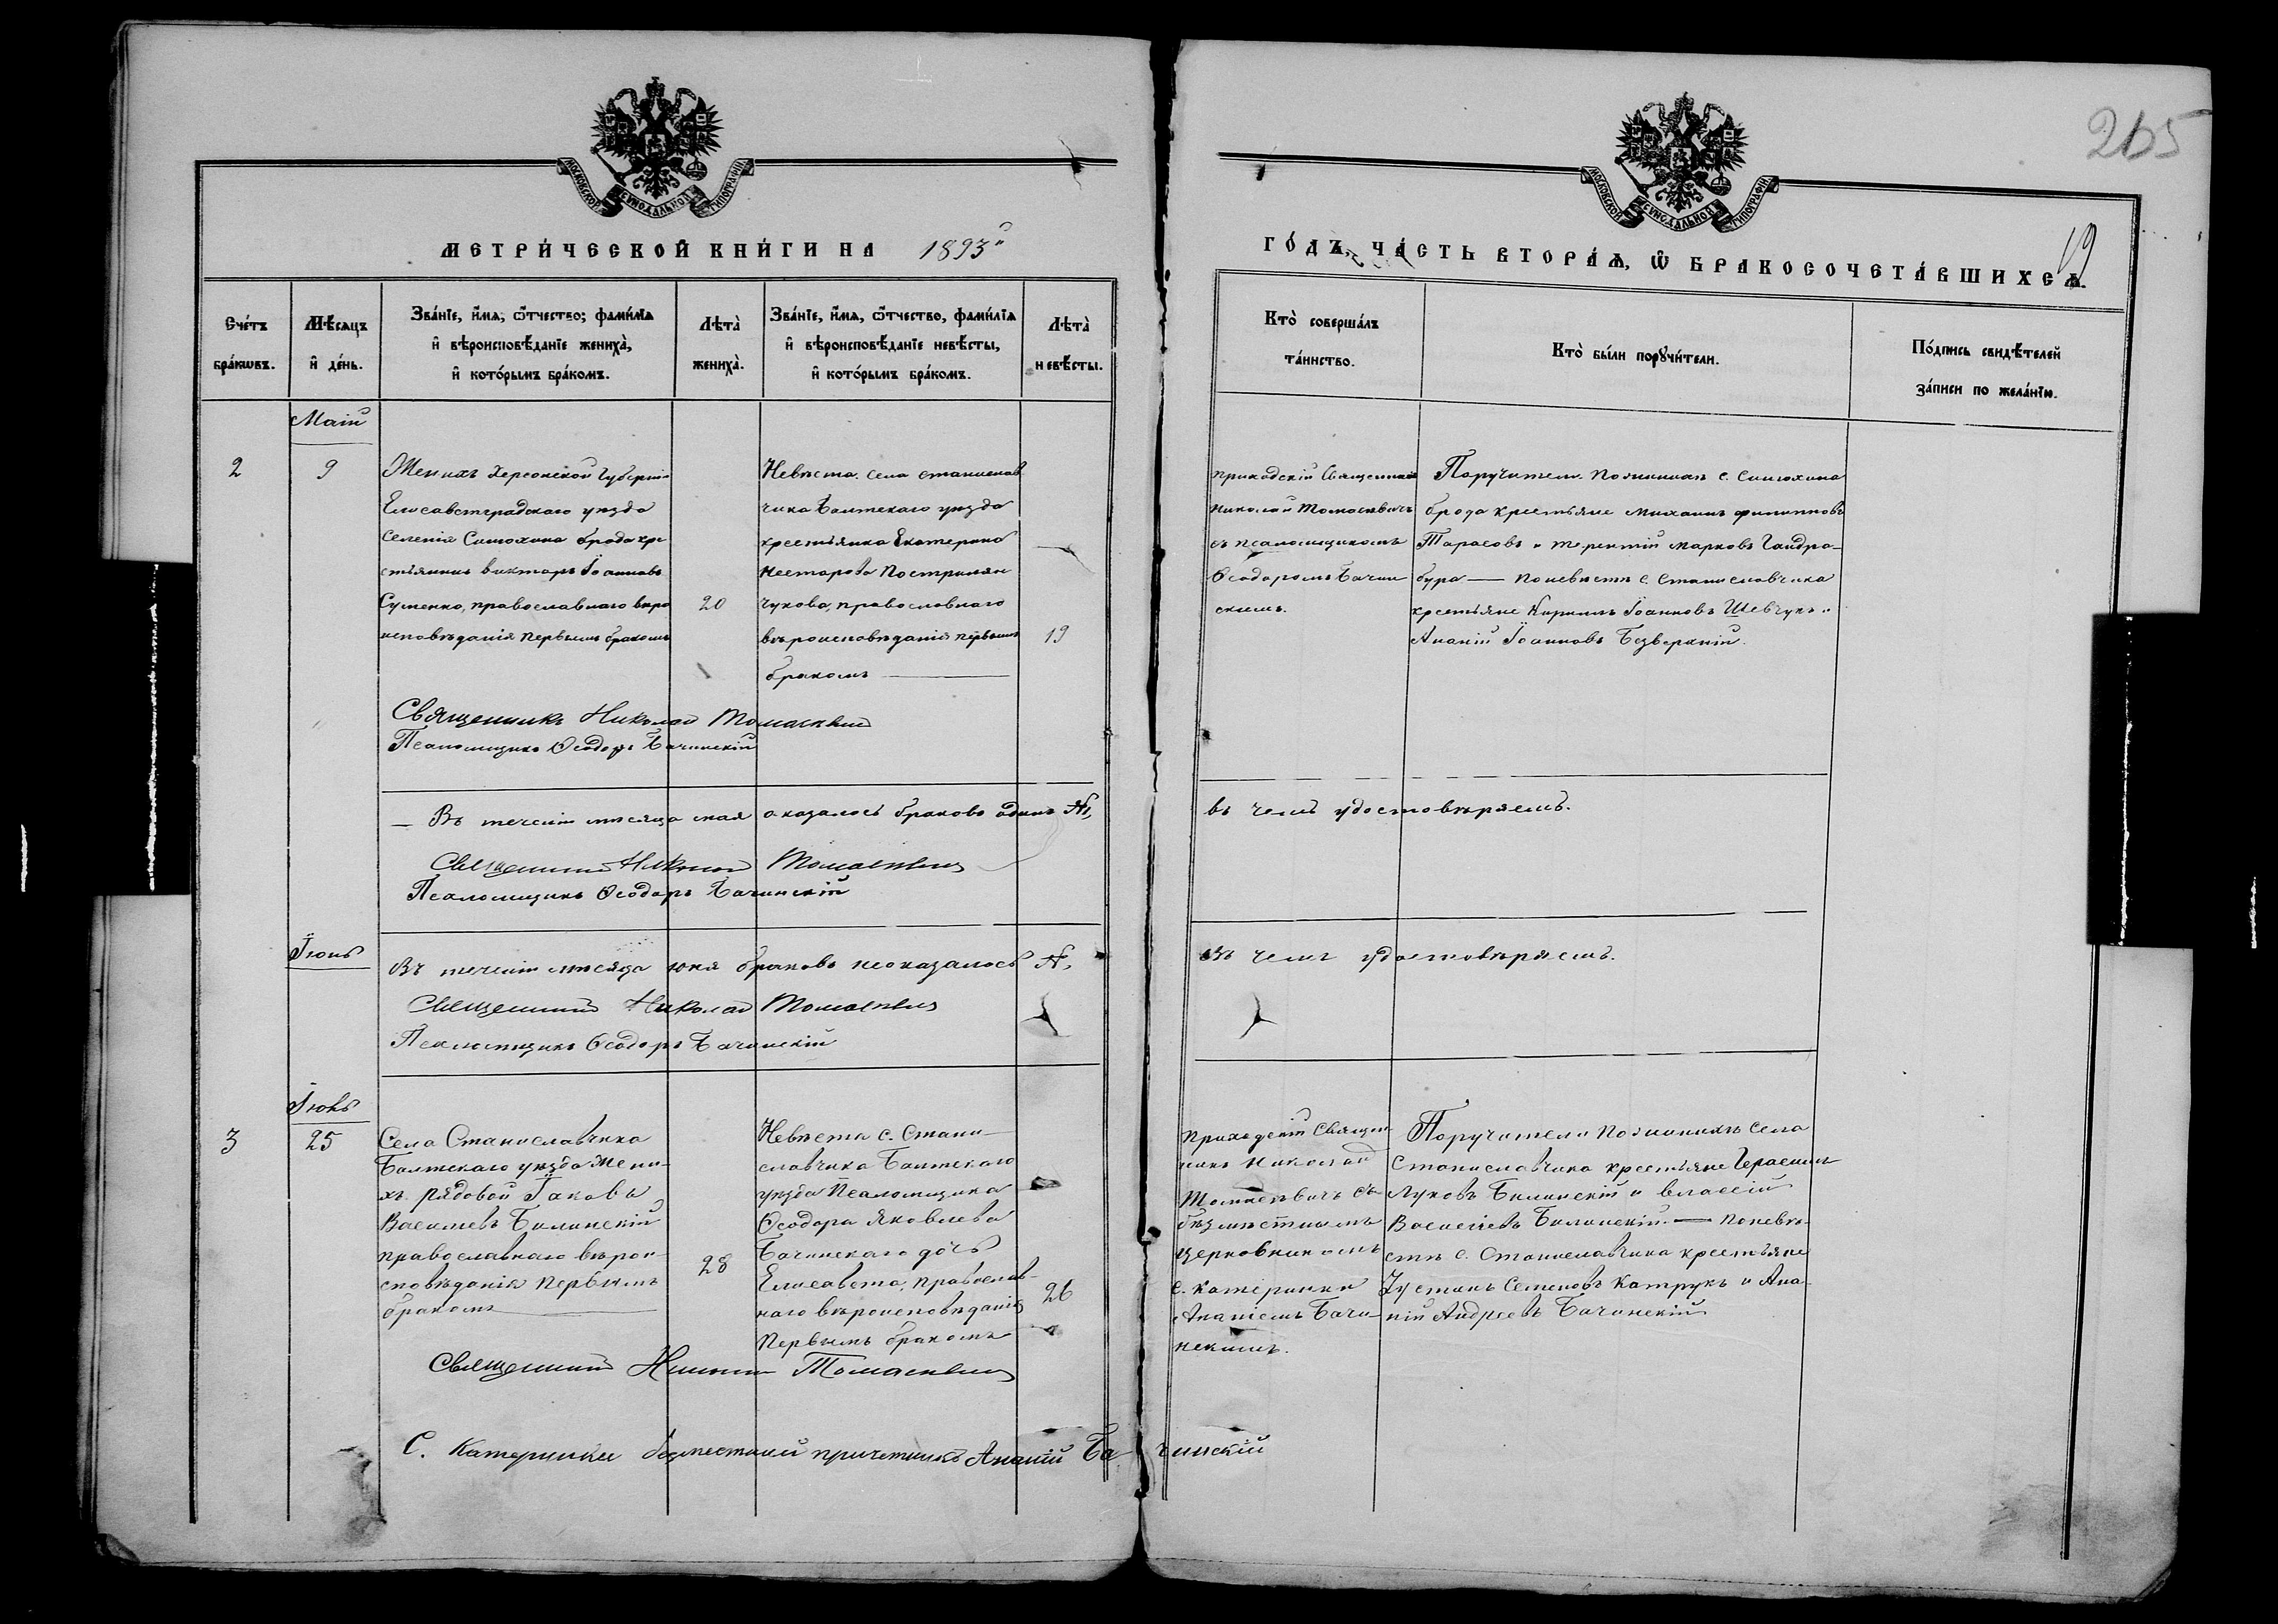 265
19
МОСКОВСКОЙ СѴНОДАЛЬНОЙ ТИПОГРАФІИ
МОСКОВСКОЙ СѴНОДАЛЬНОЙ ТИПОГРАФІИ
МЕТРИ́ЧЕСКОЙ КНИ́ГИ НА 1893й
ГО́ДЪ, ЧА́СТЬ ВТОРА́Ѧ, Ѽ БРАКОСОЧЕТА́ВШИХСѦ.
Сче́тъ бра́кѡвъ.
Мѣ́сѧцъ и҆ де́нь.
Зва́нїе, и҆́мѧ, ѻ҆́тчество, фами́лїѧ
и҆ вѣроисповѣ́данїе жениха̀,
и҆ кото́рымъ бра́комъ.
Лѣта̀ жениха̀.
Зва́нїе, и҆́мѧ, ѻ҆́тчество, фами́лїѧ
и҆ вѣроисповѣ́данїе невѣ́сты,
и҆ кото́рымъ бра́комъ.
Лѣта̀ невѣ́сты.
Кто̀ соверша́лъ
та́инство.
Кто̀ бы́ли порꙋчи́тели.
По́дпись свидѣ́телей
за́писи по жела́нїю.
Маій
2
9
Женихъ Херсонской Губерніи
Елисаветградскаго уѣзда
Селенія Синюхина брода кре
стьянинъ Викторъ Іоанновъ
Суменко, православнаго вѣро
исповѣданія первымъ бракомъ
20
Невѣста села Станислав
чика Балтскаго уѣзда
крестьянка Екатерина
Несторова Пострилян
чукова, православнаго
вѣроисповѣданія первымъ
бракомъ
19
Приходскій Священникъ
Николай Томасевичъ
съ псаломщикомъ
Ѳеодоромъ Бачин
скимъ.
Поручители по женихѣ с. Синюхина
брода крестьяне Михаилъ Филипповъ
Тарасовъ и Терентій Марковъ Гандра-
бура — по невѣстѣ с. Станиславчика
крестьяне Кириллъ Іоанновъ Шевчукъ и
Ананій Іоанновъ Безверхній.
Священникъ Николай Томасевич
Псаломщикъ Ѳеодоръ Бачинскій
— Въ теченіи мѣсяца мая оказалось браковъ одинъ №,
въ чемъ удостовѣряемъ.
Священникъ Николай Томасевич
Псаломщикъ Ѳеодоръ Бачинскій
Іюнь
Въ теченіи мѣсяца юня браковъ неоказалось №,
въ чемъ удостовѣряемъ.
Священникъ Николай Томасевич
Псаломщикъ Ѳеодоръ Бачинскій
Іюль
3
25
Села Станиславчика
Балтскаго уѣзда Жени-
хъ рядовой Іаковъ
Василіевъ Билинскій
православнаго вѣрои-
сповѣданія первымъ
бракомъ
28
Невѣста с. Стани-
славчика Балтскаго
уѣзда Псаломщика
Ѳеодора Яковлева
Бачинскаго дочь
Елисавета, православ-
наго вѣроисповѣданія
первымъ бракомъ
26
Приходскій Священ-
никъ Николай
Томасевичъ съ
безмѣстнымъ
церковникомъ
с. Катеринки
Ананіемъ Бачи-
нскимъ.
Поручители по женихѣ села
Станиславчика крестьяне Герасимъ
Луковъ Билинскій и Власій
Василіевъ Билинскій. — по невѣ-
стѣ с. Станиславчика крестьяне
Іустинъ Семеновъ Катрукъ и Ана-
ній Андреевъ Бачинскій
Священникъ Николай Томасевич
С. Катеринки безместный причетникъ Ананій Бачинскій